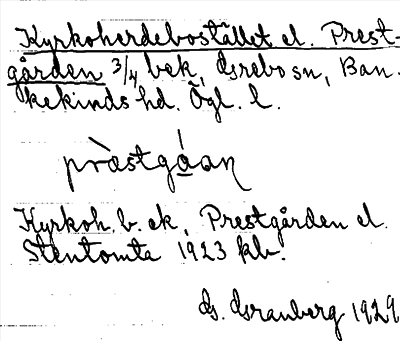 Kyrkoherdebostället el. Prest-
gården 3/4 bek, Grebo sn, Ban-
kekinds hd. Ögl. l.
pràstgá̱an
Kyrkoh. b. ek, Prestgården el.
Stentomta 1923 kb.
G. Granberg 1929